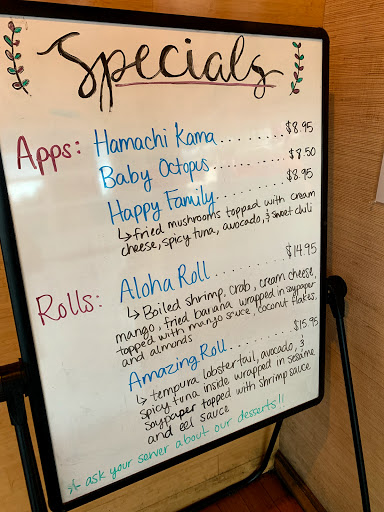 Specials
Apps: Hamachi Kama........... $8.95
Baby Octopus............ $8.50
Happy Family............ $8.95
↳ fried mushrooms topped with cream
cheese, spicy tuna, avocado, & sweet chili
Rolls: Aloha Roll............ $14.95
↳ Boiled shrimp, crab, cream cheese,
mango, fried banana wrapped in soypaper
topped with mango sauce, coconut flakes,
and almonds
Amazing Roll............ $15.95
↳ tempura lobster tail, avocado, &
spicy tuna inside wrapped in sesame
soypaper topped with shrimp sauce
and eel sauce
* ask your server about our desserts!!